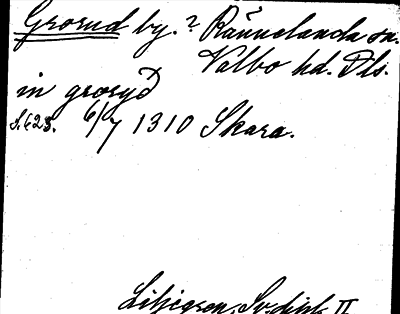 Grorud by.? Rännelanda sn.
Valbo hd. Dls.
in groryð
S. 623. 6/7 1310 Skara.
Liljegren, Sv. dipl. II